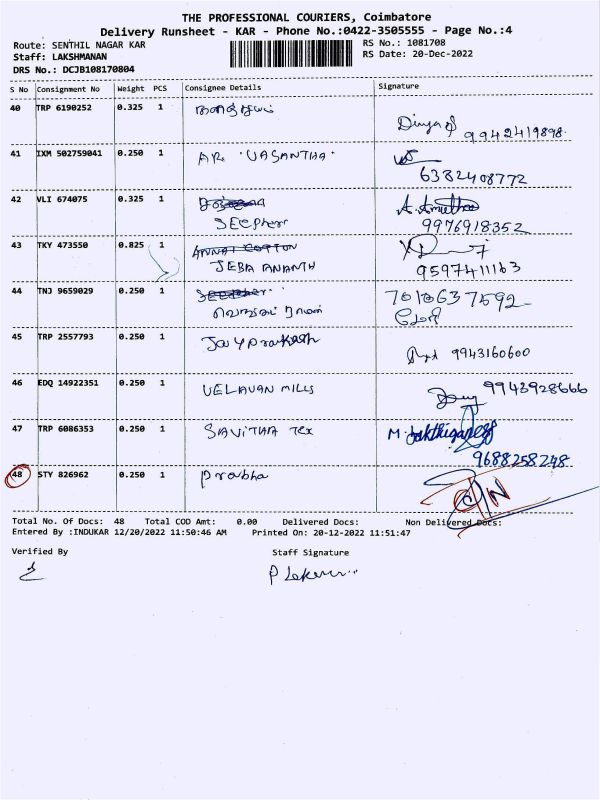 THE PROFESSIONAL COURIERS, Coimbatore
Delivery Runsheet - KAR - Phone No.:0422-3505555 - Page No.:4
Route: SENTHIL NAGAR KAR
RS No.: 1081708
Staff: LAKSHMANAN
RS Date: 20-Dec-2022
DRS No.: DCJB108170804
S No Consignment No Weight PCS Consignee Details Signature
40 TRP 6190252 0.325 1
Divya 9942419898.
41 IXM 502759041 0.250 1 AR. 'VASANTHA'
6382408772
42 VLI 674075 0.325 1
SEEpher 9976918352
43 TKY 473550 0.825 1 ANNAI COTTON
JEBA ANANTH 9597411163
44 TNJ 9659029 0.250 1 7010637592
45 TRP 2557793 0.250 1 Jaiyprakash
9943160600
46 EDQ 14922351 0.250 1 VELAVAN MILLS 9943928666
47 TRP 6086353 0.250 1 SAVITHA Tex M.
9688258248
48 STY 826962 0.250 1 Prabha
Total No. Of Docs: 48 Total COD Amt: 0.00 Delivered Docs: Non Delivered Docs:
Entered By :INDUKAR 12/20/2022 11:50:46 AM Printed On: 20-12-2022 11:51:47
Verified By Staff Signature